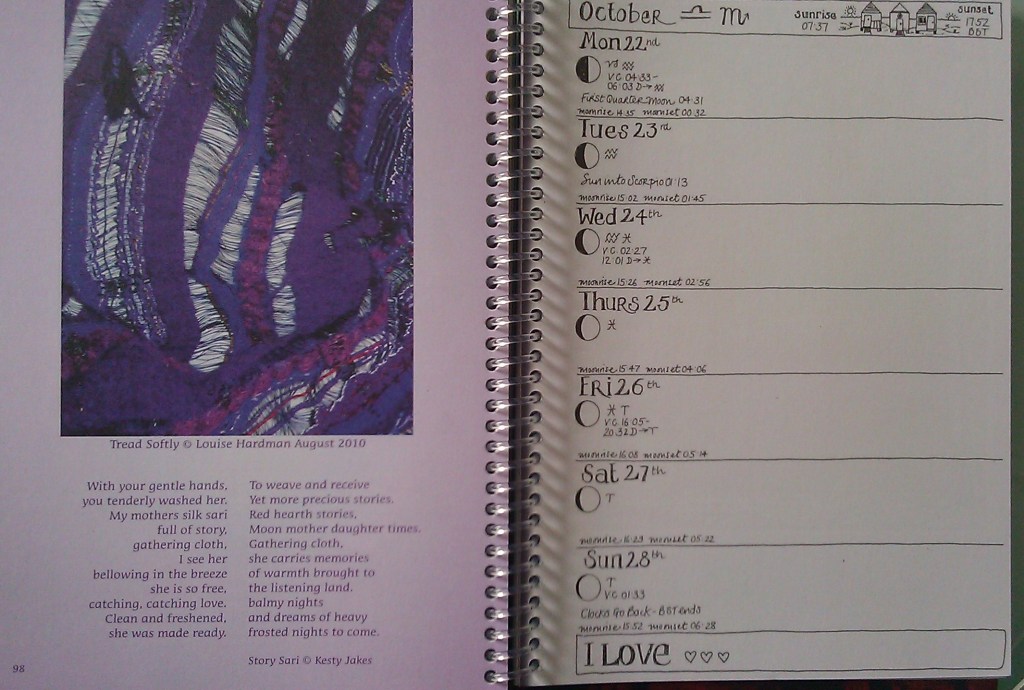 Tread Softly © Louise Hardman August 2010
With your gentle hands,
you tenderly washed her.
My mothers silk sari
full of story,
gathering cloth,
I see her
bellowing in the breeze
she is so free,
catching, catching love.
Clean and freshened,
she was made ready.
To weave and receive
Yet more precious stories,
Red hearth stories,
Moon mother daughter times.
Gathering cloth,
she carries memories
of warmth brought to
the listening land.
balmy nights
and dreams of heavy
frosted nights to come.
Story Sari © Kesty Jakes
98
October ♎ ♏
sunrise
07:37
sunset
17:52
BST
Mon 22nd
♒
V.C. 04:33-
06:03 D→♒
First Quarter Moon 04:31
moonrise 14:35 moonset 00:32
Tues 23rd
♒
Sun into Scorpio 01:13
moonrise 15:02 moonset 01:45
Wed 24th
♒ ♓
V.C. 02:27
12:01 D→♓
moonrise 15:26 moonset 02:56
Thurs 25th
♓
moonrise 15:47 moonset 04:06
Fri 26th
♓ ♈
V.C. 16:05-
20:32 D→♈
moonrise 16:08 moonset 05:14
Sat 27th
♈
moonrise 16:29 moonset 05:22
Sun 28th
♈
V.C. 01:33
Clocks Go Back - BST ends
moonrise 15:52 moonset 06:28
I Love ♡♡♡